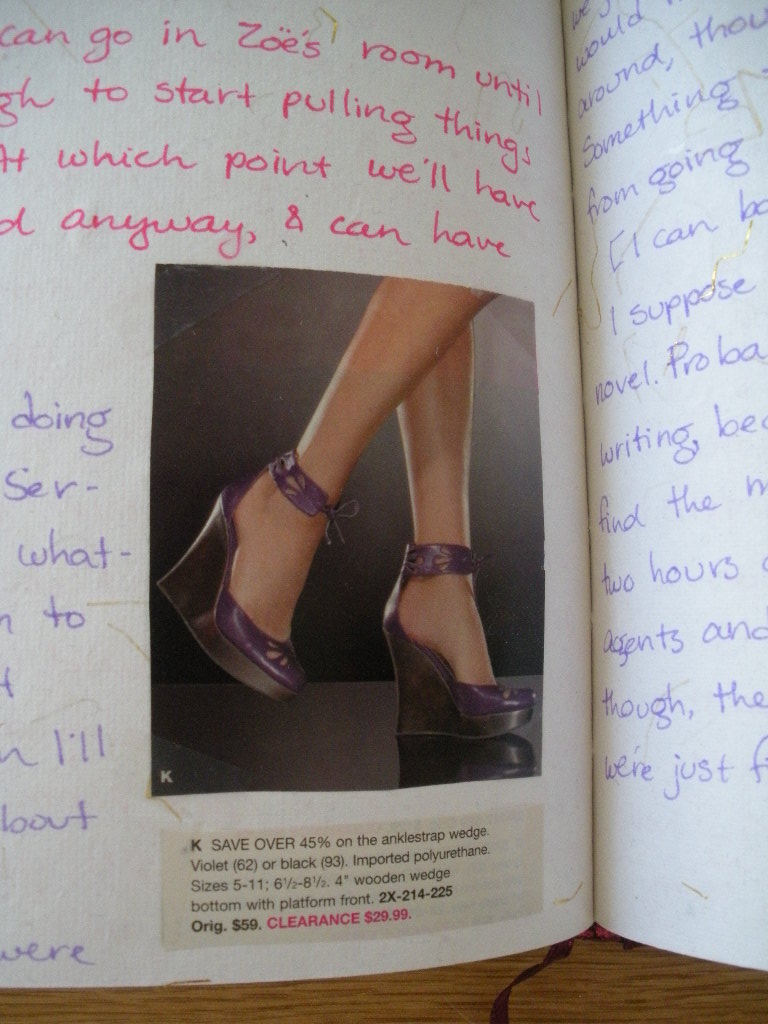 can go in Zoë's room until
gh to start pulling things
At which point we'll have
d anyway, & can have
doing
Ser-
what-
to
I'll
bout
were
K
K SAVE OVER 45% on the anklestrap wedge.
Violet (62) or black (93). Imported polyurethane.
Sizes 5-11; 6½-8½. 4" wooden wedge
bottom with platform front. 2X-214-225
Orig. $59. CLEARANCE $29.99.
would
around, thou
Something
from going
[I can ba
I suppose
novel. Proba
writing, bec
find the m
two hours
agents and
though, the
we're just f